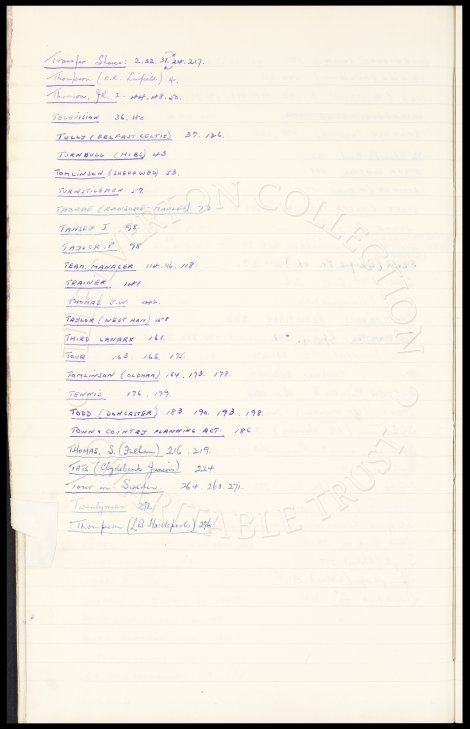 Transfer Shares: 2. 22. 31. 217.
Thompson (O.R. Linfield) 4.
Thomson, 2. 44. 48. 50.
TELEVISION 36. 40
TULLY (BELFAST CELTIC) 37. 126.
TURNBULL (HIBS) 43
TOMLINSON (SHEFF WED) 53.
TURNSTILEMAN 57.
THORPE (RANSOME-MARLES) 73
TANSEY J 98.
TAYLOR. P. 98
TEAM. MANAGER 114. 116. 118.
TRAINER. 141
THOMAS J.W 142.
TAYLOR (WEST HAM) 158
THIRD LANARK 161.
TOUR 163. 166. 175.
TOMLINSON (OLDHAM) 164. 173. 178.
TENNIS 176. 179.
TODD (DONCASTER) 183. 190. 193. 198.
TOWN & COUNTRY PLANNING ACT. 186
THOMAS, S. (Fulham) 216. 219.
TATE (Clydebank Juniors) 224
Tour in Sweden 264. 268. 271.
Twentyman 272.
Thompson (L.B. Hartlepools) 296
WOLVERTON COLLECTION
CHARITABLE TRUST ©